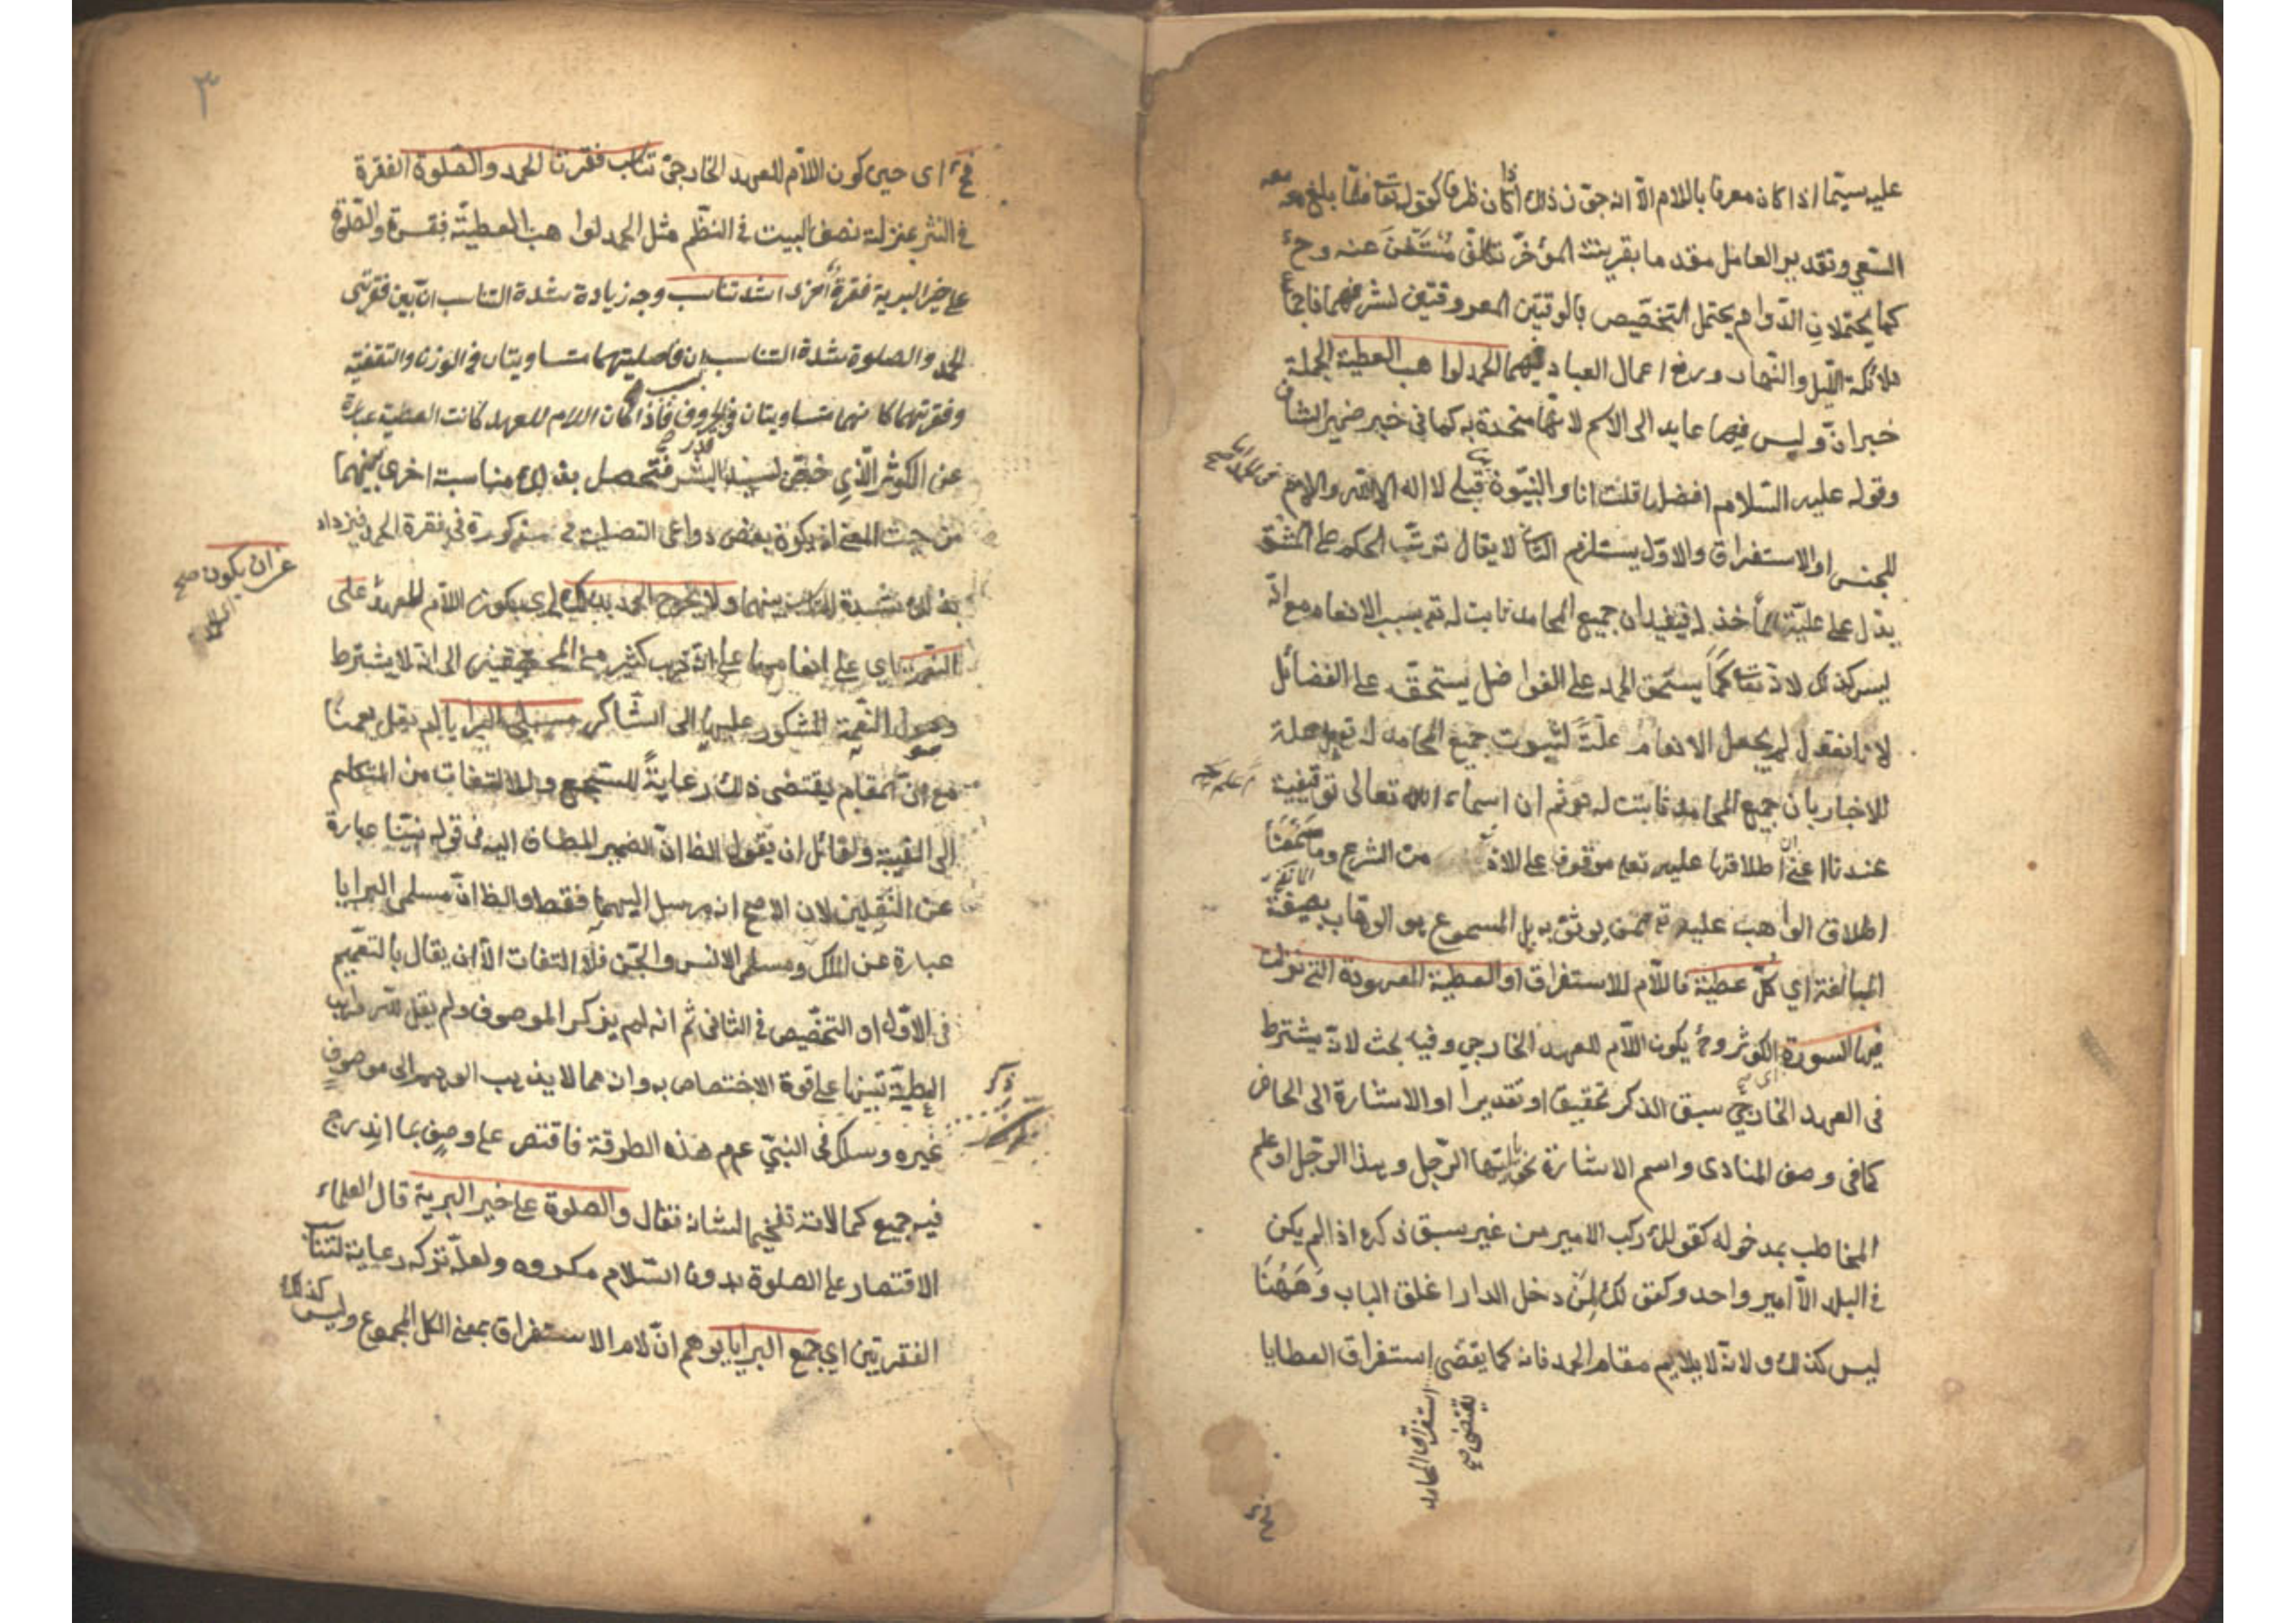 عليه سيّما اذا كان معرفا باللام الّا انه جوّز ذلك اذا كان ظرفا كقوله تعا فلمّا بلغ معه
السّعي وتقدير العامل مقدما بقرينة المؤخّر تكلّف مستغنى عنه وح
كما يحتملان الدّوام يحتمل التخصيص بالوقتين المعروفتين لشرفهما
ملائكة اللّيل والنّهار ورفع اعمال العباد فيهما الحمد لواهب العطية الجملة
خبر انّ وليس فيها عايد الى الاسم لانّها متحدة به كما في خبر ضمير الشان
وقوله عليه السّلام افضل ما قلت انا والنبيّون قبلي لا اله الا الله واللام
للجنس او الاستغراق والاوّل يستلزم الثاني لا يقال ترتّب الحكم على المشتق
يدّل على عليّة المأخذ له فيفيد ان جميع المحامد ثابت له تع بسبب الانعام مع انّه
ليس كذلك لانه تعا كما يستحق الحمد على الفواضل يستحقّه على الفضائل
لانا نقول لم يجعل الانعام علّة لثبوت جميع المحامد له تع بل علة
للاخبار بان جميع المحامد ثابت له هو ثم ان اسماء الله تعالى توقيفية
عندنا اعني ان اطلاقها عليه تع موقوف على الاذن من الشرع وما سمعنا
اطلاق الواهب عليه تع ممن يوثق به بل المسموع هو الوهّاب بصيغة
المبالغة اي كلّ عطيّة فاللّام للاستغراق او العطية المعهودة التي نزلت
فيها السورة الكوثر وح يكون اللّام للعهد الخارجي وفيه بحث لانّه يشترط
في العهد الخارجي سبق الذكر تحقيقا او تقديرا او الاشارة الى الحاضر
كما في وصف المنادى واسم الاشارة نحو يا ايّها الرّجل وهذا الرّجل او علم
المخاطب بمدخوله كقولك ركب الامير من غير سبق ذكره اذا لم يكن
في البلد الّا امير واحد وكقولك لمن دخل الدار اغلق الباب وههنا
ليس كذلك ولانّه لا يلايم مقام الحمد فانه كما يقتضي استغراق العطايا
يقتضي صح
استغراق المحامد
فح
٣
فح اي حين كون اللاّم للعهد الخارجيّ تناسب فقرتا الحمد والصّلوة الفقرة
في النثر بمنزلة نصف البيت في النّظم مثل الحمد لواهب العطيّة فقرة والصّلوة
على خير البرية فقرة اخرى اشد تناسب وجه زيادة شدة التناسب انّ بين فقرتي
الحمد والصلوة شدة التناسب لان فاصليتهما متساويتان في الوزن والتقفية
وفقرتهما كانهما متساويتان في الحروف فاذا كان اللام للعهد كانت العطية عبارة
عن الكوثر الّذي خصّ لسيد البشر فتحصل بذلك مناسبة اخرى بينهما
من حيث المعنى اذ يكون بعض دواعي التصلية مذكورة في فقرة الحمد فيزداد
بذلك شدة التناسب بينهما ولا يخرج الحمد بذلك اي بكون اللاّم للعهد على
عن ان يكون صح
النعم اي على انعامها على انّه ذهب كثير من المحققين الى انه لا يشترط
وصول النّعمة المشكور عليها الى الشّاكر مسلمي البرايا لم يقل نعمنا
مع انّ المقام يقتضي ذلك رعاية للسجع وللالتفات من المتكلم
الى الغيبة ولقائل ان يقول الظ انّ الضمير المضاف اليه في قوله نبيّنا عبارة
عن الثقلين لان الاصح انه مرسل اليهما فقط والظ انّ مسلمي البرايا
عبارة عن الملك ومسلمي الانس والجنّ فلا التفات الّا ان يقال بالتعميم
في الاوّل او التخصيص في الثاني ثم انه لم يذكر الموصوف ولم يقل لله واهب
العطيّة تنبيها على قوة الاختصاص به وانه مما لا يذهب الوهم الى موصوف
غيره وسلك في النبيّ عم هذه الطريقة فاقتصر على وصف بما اندرج
فيه جميع كمالاته تفخيما لشانه فقال والصلوة على خير البرية قال العلماء
الاقتصار على الصلوة بدون السّلام مكروه ولعلّه تركه رعاية لتناسب
الفقرتين اي جميع البرايا يوهم انّ لام الاستغراق بمعنى الكل المجموع وليس كذلك